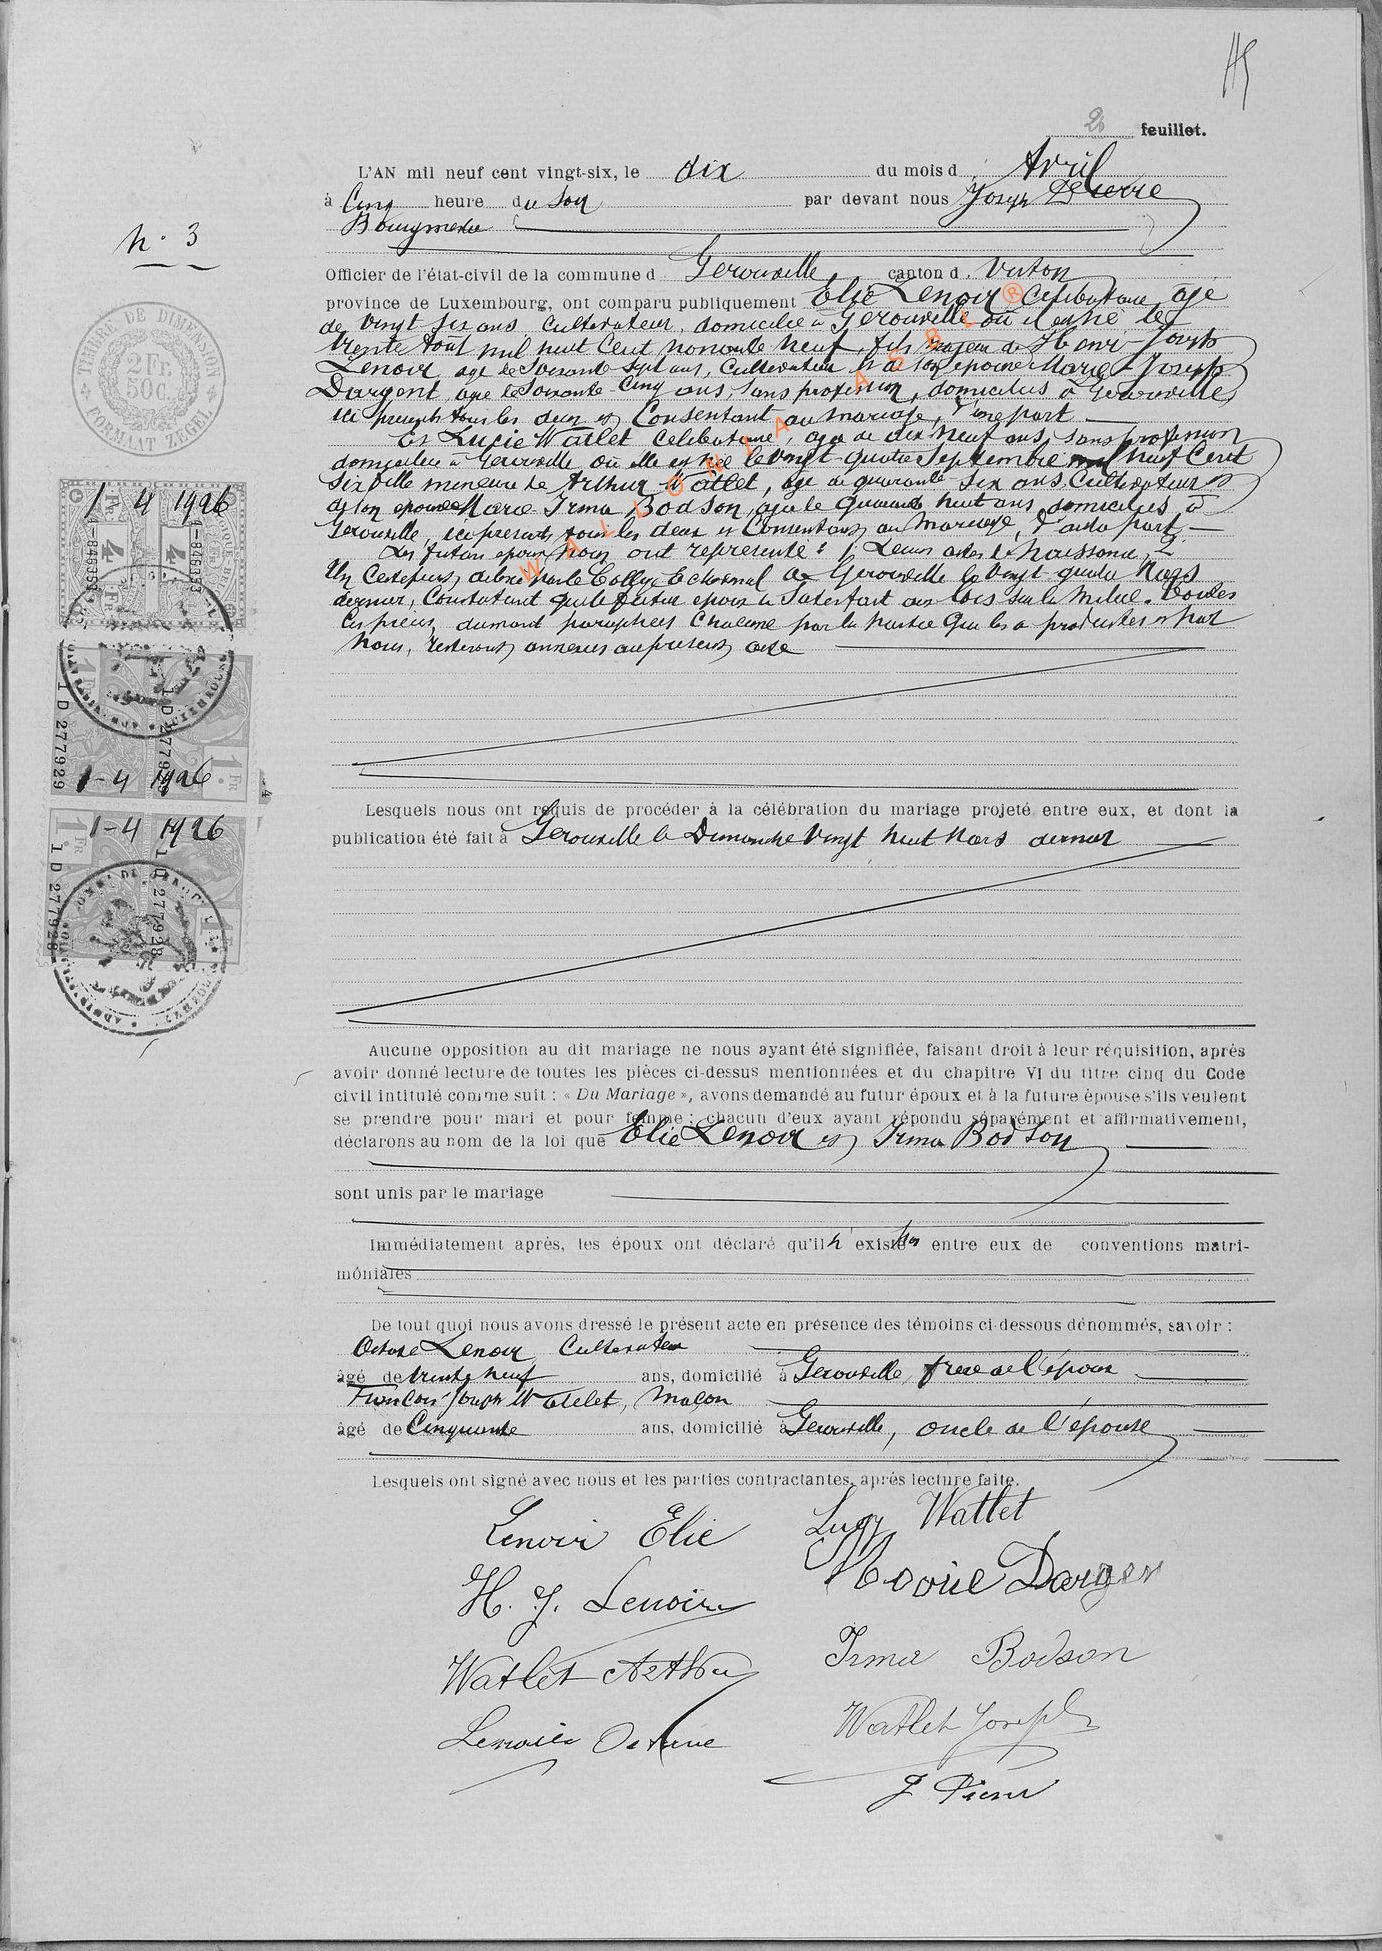 2e feuillet.
L'AN mil neuf cent vingt-six, le dix du mois d Avril
à Cinq heure du Soir par devant nous Joseph Pierre
Bourgmestre
N° 3
Officier de l'état-civil de la commune d Gerouville canton d Virton
province de Luxembourg, ont comparu publiquement Elie Lenoir Celibataire, age
de vingt six ans Cultivateur, domicilié à Gerouville où il est né le
trente Aout mil huit Cent nonante neuf, fils majeur de Henri Joseph
Lenoir age de Soixante Sept ans, Cultivateur et de son épouse Marie Joseph
Dargent, age de Soixante Cinq ans, sans profession, domicilies à Gerouville,
ici presents tous les deux et Consentant au mariage, d'une part
Et Lucie Watlet Celibataire, age de dix neuf ans, sans profession
domiciliee à Gerouville où elle est née le vingt-quatre Septembre mil neuf Cent
Six fille mineure de Arthur Watlet, age de quarante Six ans, Cultivateur et
de son epouse Marie Irma Bodson, age de Quarante huit ans domicilies à
Gerouville, ici presents tous les deux et Consentant au Mariage, d'autre part
Les futurs epoux nous ont representé : 1 Leurs actes de Naissance, 2
Un Certificat, delivré par le College Echevinal de Gerouville le vingt quatre Mars
dernier, Constatant que le futur epoux a Satisfait aux lois sur la Milice. Toutes
Ces pieces, dument paraphees Chacune par la Partie qui les a produites et par
Nous, resteront annexees au present acte
TIMBRE DE DIMENSION
2 FR. 50 C.
FORMAAT ZEGEL
1-4 1926
1-4 1926
1 D 277929
1-4 1926
1 D 277928
Lesquels nous ont requis de procéder à la célébration du mariage projeté entre eux, et dont la
publication été fait à Gerouville le Dimanche Vingt huit Mars dernier
Aucune opposition au dit mariage ne nous ayant été signifiée, faisant droit à leur réquisition, après
avoir donné lecture de toutes les pièces ci-dessus mentionnées et du chapitre VI du titre cinq du Code
civil intitulé comme suit : « Du Mariage », avons demandé au futur époux et à la future épouse s'ils veulent
se prendre pour mari et pour femme : chacun d'eux ayant répondu séparément et affirmativement,
déclarons au nom de la loi que Elie Lenoir et Irma Bodson
sont unis par le mariage
Immédiatement après, les époux ont déclaré qu'il n'existe pas entre eux de conventions matri-
moniales
De tout quoi nous avons dressé le présent acte en présence des témoins ci-dessous dénommés, savoir :
Octave Lenoir Cultivateur
âgé de trente neuf ans, domicilié à Gerouville, frere de l'époux
François Joseph Watelet, Maçon
âgé de Cinquante ans, domicilié à Gerouville, oncle de l'épouse
Lesquels ont signé avec nous et les parties contractantes, après lecture faite.
Lenoir Elie Lucy Watlet
H. J. Lenoir Marie Dargen
Watlet Arthur Irma Bodson
Lenoir Octave Watlet Joseph
J Pierre
WALLONIA ASBL ®